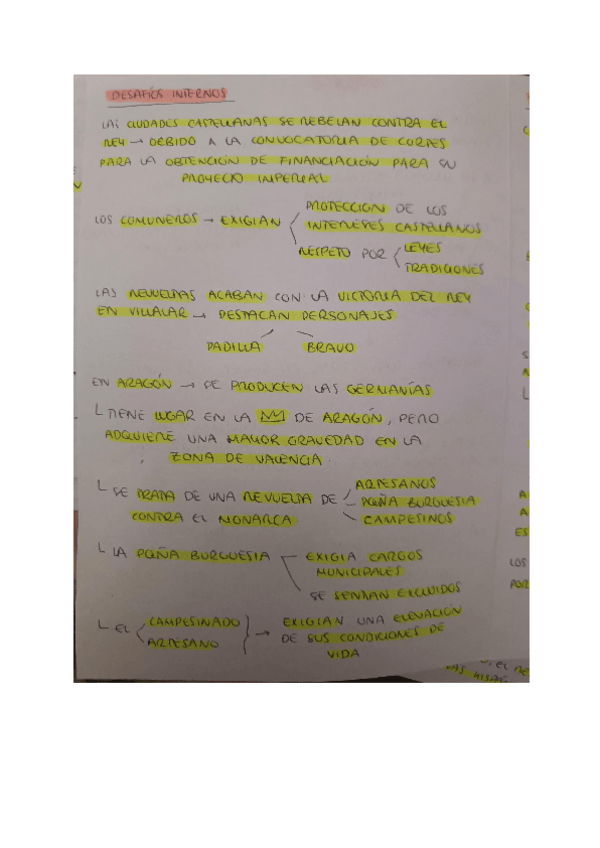 DESAFÍOS INTERNOS
LAS CIUDADES CASTELLANAS SE REBELAN CONTRA EL
REY → DEBIDO A LA CONVOCATORIA DE CORTES
PARA LA OBTENCIÓN DE FINANCIACIÓN PARA SU
PROYECTO IMPERIAL
LOS COMUNEROS → EXIGIAN
PROTECCION DE LOS
INTERESES CASTELLANOS
RESPETO POR
LEYES
TRADICIONES
LAS REVUELTAS ACABAN CON LA VICTORIA DEL REY
EN VILLALAR → DESTACAN PERSONAJES
PADILLA BRAVO
EN ARAGÓN → SE PRODUCEN LAS GERMANÍAS
TIENE LUGAR EN LA DE ARAGÓN, PERO
ADQUIERE UNA MAYOR GRAVEDAD EN LA
ZONA DE VALENCIA
SE TRATA DE UNA REVUELTA DE
CONTRA EL MONARCA
ARTESANOS
PQÑA BURGUESIA
CAMPESINOS
LA PQÑA BURGUESIA
EXIGIA CARGOS
MUNICIPALES
SE SENTIAN EXCLUIDOS
EL
CAMPESINADO
ARTESANO
→ EXIGIAN UNA ELEVACIÓN
DE SUS CONDICIONES DE
VIDA
A
A
ES
LOS
POR